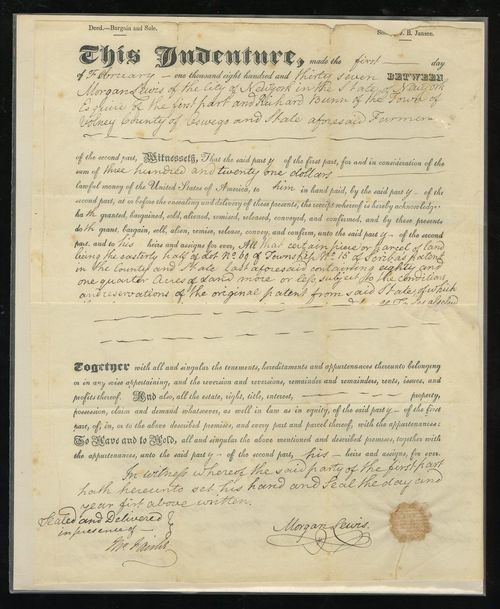 Deed.—Bargain and Sale.
B. Jansen.
This Indenture, made the first day
of February — one thousand eight hundred and thirty seven BETWEEN
Morgan Lewis of the City of New York in the State of New York
Esquire of the first part and Richard Bunn of the Town of
Volney County of Oswego and State aforesaid Farmer
of the second part, Witnesseth, That the said party of the first part, for and in consideration of the
sum of three hundred and twenty one dollars
lawful money of the United States of America, to him in hand paid, by the said party — of the
second part, at or before the ensealing and delivery of these presents, the receipt whereof is hereby acknowledged,
hath granted, bargained, sold, aliened, remised, released, conveyed, and confirmed, and by these presents
doth grant, bargain, sell, alien, remise, release, convey, and confirm, unto the said party — of the second
part, and to his heirs and assigns for ever, All that certain piece or parcel of land
being the easterly half of Lot No. 69 of Township No. 15 of Scribas patent
in the County and State last aforesaid containing eighty and
one quarter Acres of Land more or less subject to the conditions
and reservations of the original patent from said State of which
Together with all and singular the tenements, hereditaments and appurtenances thereunto belonging
or in any wise appertaining, and the reversion and reversions, remainder and remainders, rents, issues, and
profits thereof. And also, all the estate, right, title, interest, property,
possession, claim and demand whatsoever, as well in law as in equity, of the said party — of the first
part, of, in, or to the above described premises, and every part and parcel thereof, with the appurtenances:
To Have and to Hold, all and singular the above mentioned and described premises, together with
the appurtenances, unto the said party — of the second part, his — heirs and assigns, for ever.
In witness whereof the said party of the first part
hath hereunto set his hand and Seal the day and
year first above written.
Sealed and Delivered
in presence of —
Morgan Lewis.